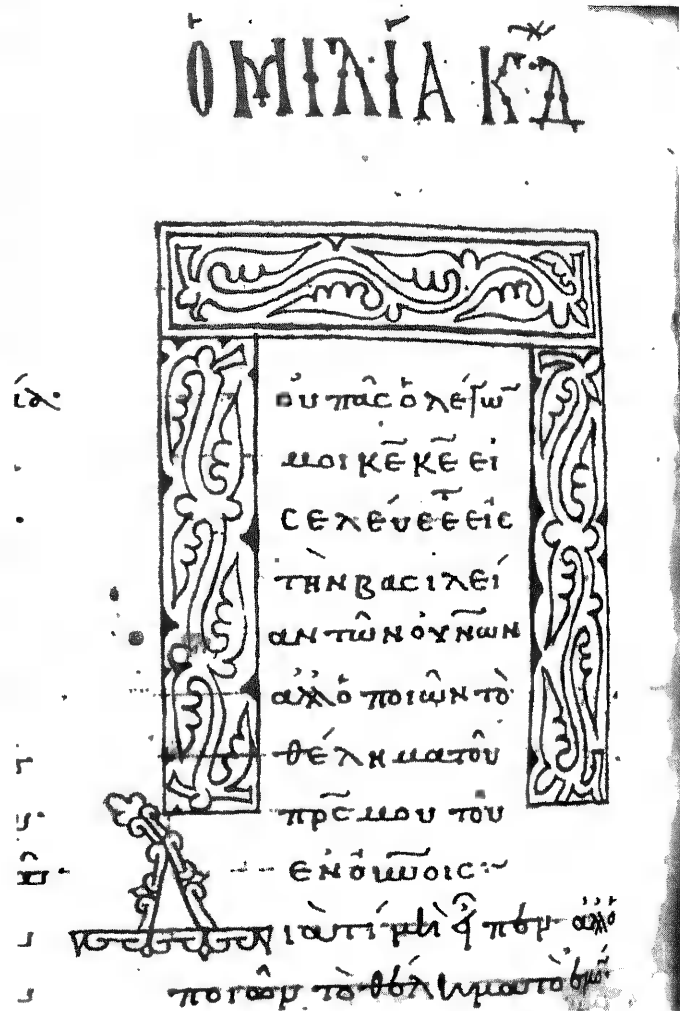 ὉΜΙΛΊΑ ΚΔ
οὐ πᾶς ὁ λέγῶ
μοι κε̅ κε̅ εἰ
σελεύσεται εἰς
τὴν βασιλεί
αν τῶν οὐν͞ων
ἀλλ ὁ ποιῶν τὸ
θέλημα τοῦ
πρ̅ς μου τοῦ
ἐν οὐ̅νοις
Διὰ τί μὴ εἶπεν ἀλλ ὁ
ποιῶν τὸ θέλημα τὸ ἐμὸν